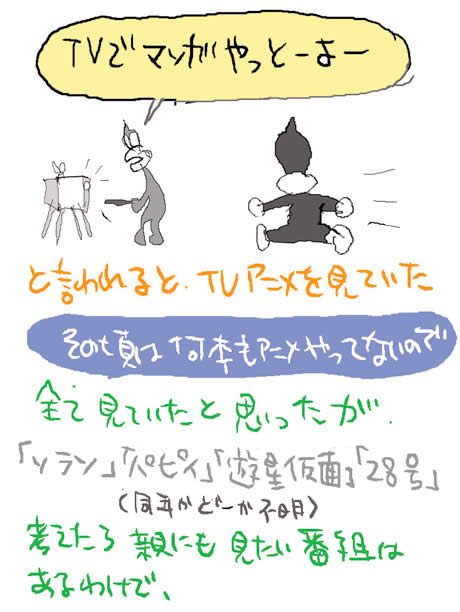 TVでマンガやっとーよー
と言われると、TVアニメを見ていた
その頃は何本もアニメやってないので
全て見ていたと思ったが、
「ソラン」「パピィ」「遊星仮面」「28号」
(同年かどーか不明)
考えたら親にも見たい番組は
あるわけで、